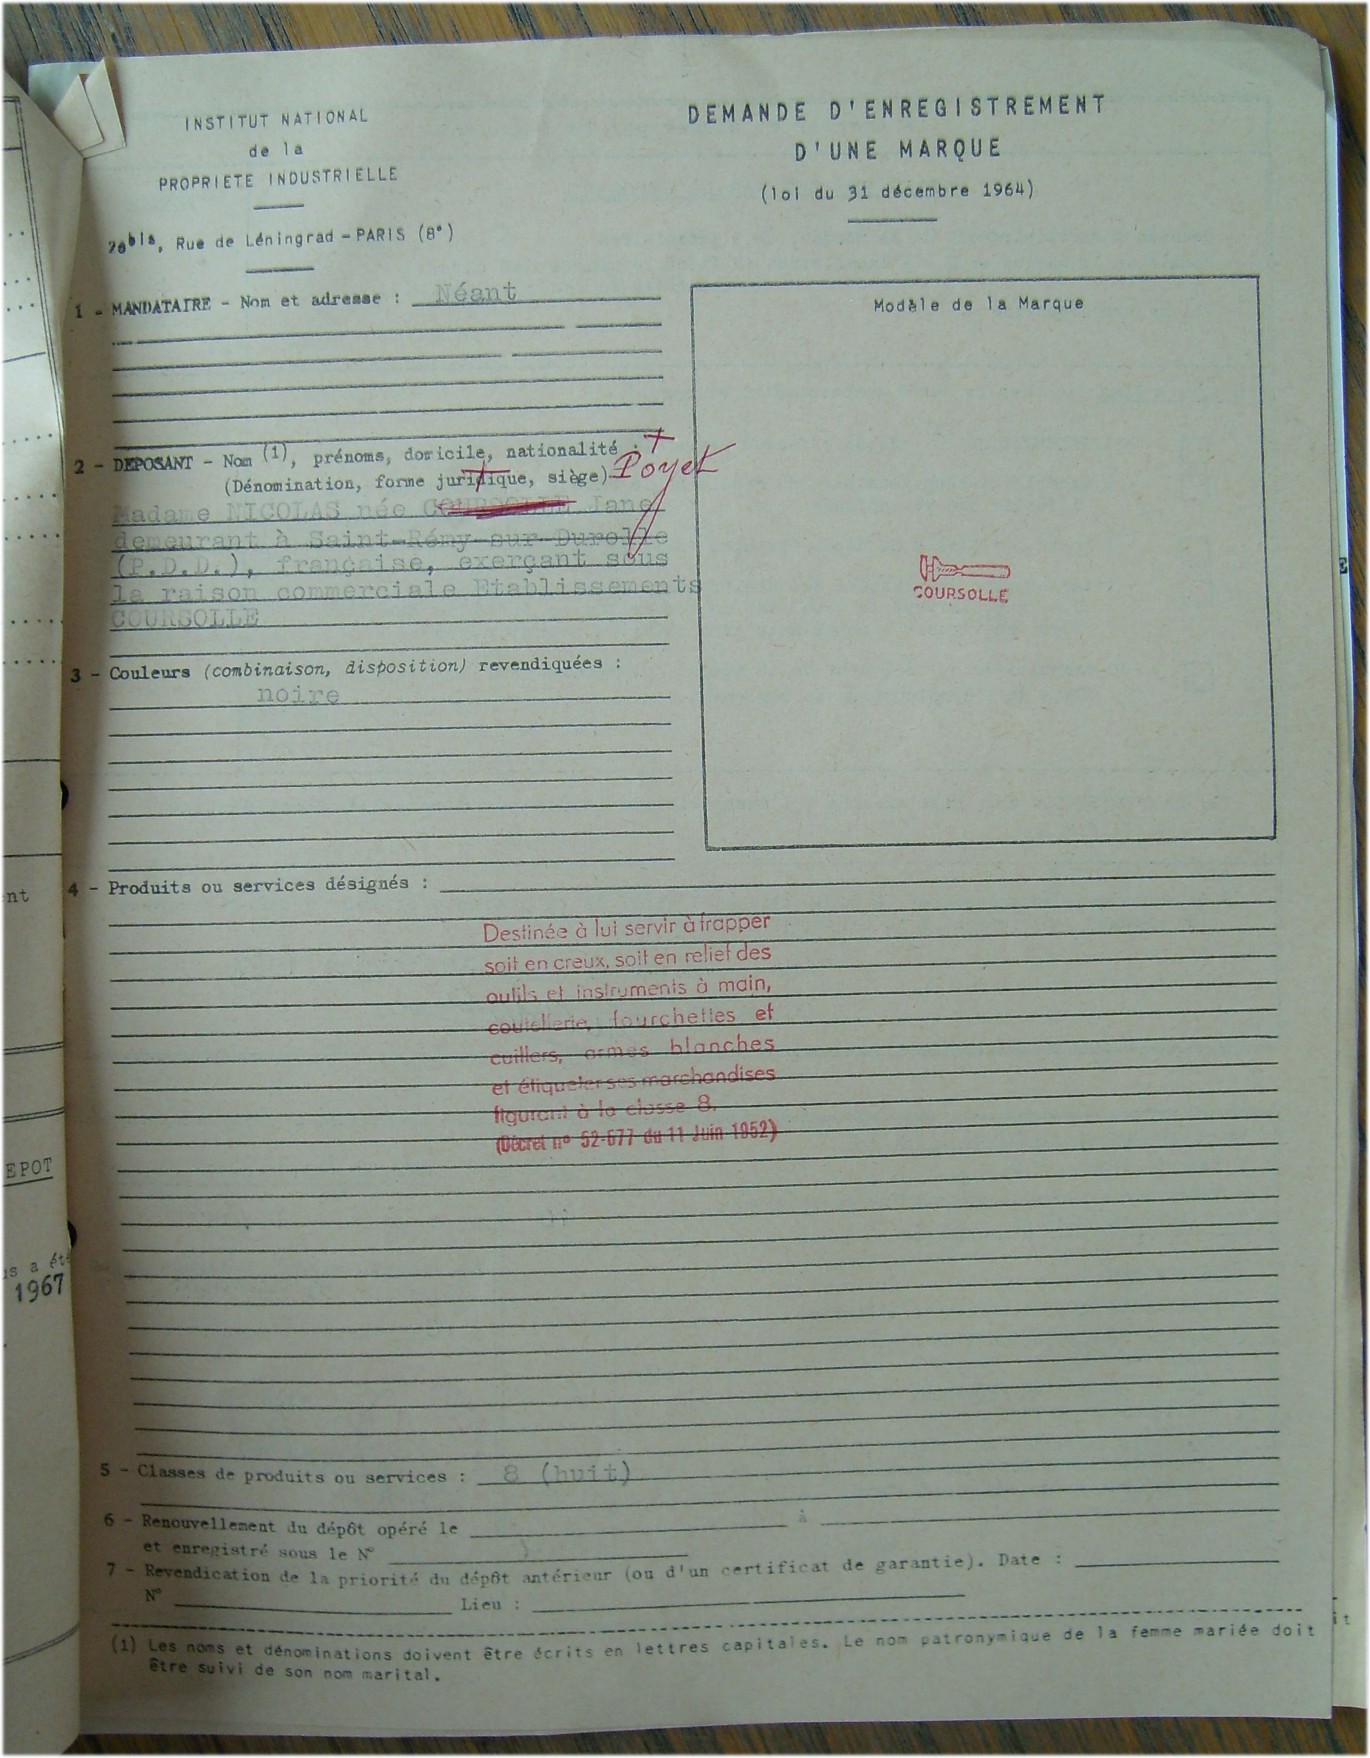 INSTITUT NATIONAL
de la
PROPRIETE INDUSTRIELLE
26bis, Rue de Léningrad - PARIS (8e)
DEMANDE D'ENREGISTREMENT
D'UNE MARQUE
(loi du 31 décembre 1964)
1 - MANDATAIRE - Nom et adresse : Néant
Modèle de la Marque
COURSOLLE
2 - DEPOSANT - Nom (1), prénoms, domicile, nationalité :
(Dénomination, forme juridique, siège)
Poyet
Madame NICOLAS née COURSOLLE Jane
demeurant à Saint-Rémy-sur-Durolle
(P.D.D.), française, exerçant sous
la raison commerciale Etablissements
COURSOLLE
3 - Couleurs (combinaison, disposition) revendiquées :
noire
4 - Produits ou services désignés :
Destinée à lui servir à frapper
soit en creux, soit en relief des
outils et instruments à main,
coutellerie, fourchettes et
cuillers, armes blanches
et étiqueter ses marchandises
figurant à la classe 8.
(Décret nº 52-677 du 11 Juin 1952)
5 - Classes de produits ou services : 8 (huit)
6 - Renouvellement du dépôt opéré le à
et enregistré sous le Nº
7 - Revendication de la priorité du dépôt antérieur (ou d'un certificat de garantie). Date :
Nº Lieu :
(1) Les noms et dénominations doivent être écrits en lettres capitales. Le nom patronymique de la femme mariée doit
être suivi de son nom marital.
nt
EPOT
us a été
1967
E
it